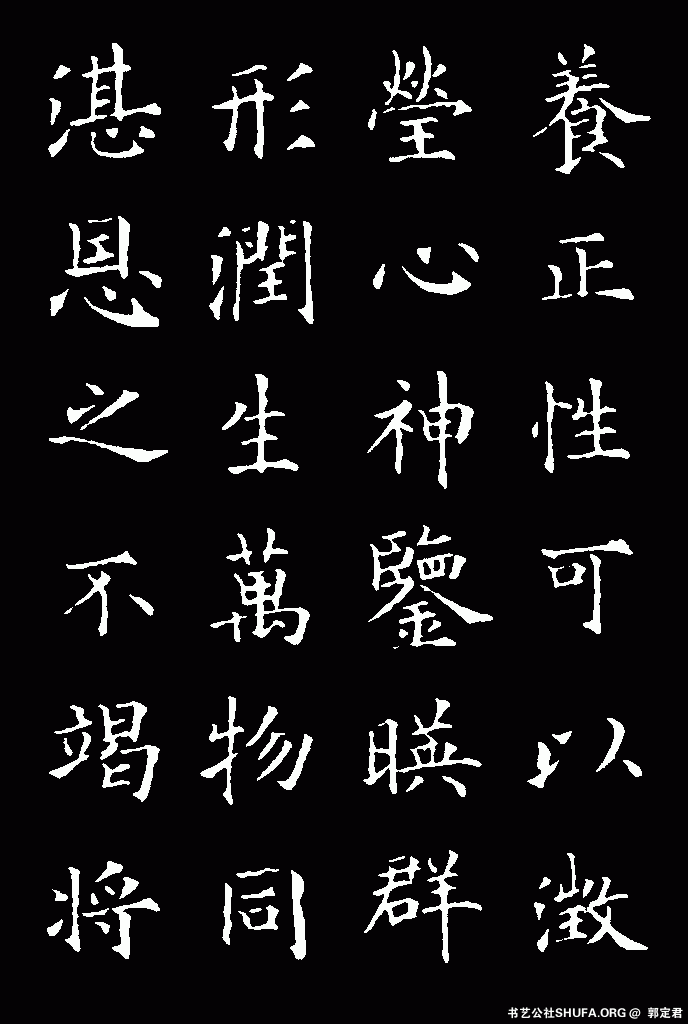 養正性可以澂
瑩心神鑒暎群
形潤生萬物同
湛恩之不竭將
书艺公社SHUFA.ORG @ 郭定君